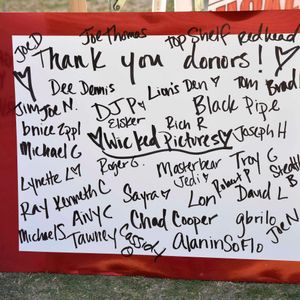 Joe D Joe Thomas Top Shelf redhead
Thank you donors!
Dee Dennis Lion's Den Tom Brad
Jim Joe N. DJ P Black Pipe
bnice2ppl Elsker Rich R
Michael G Wicked Pictures Joseph H
Roger G. Masterbear Troy G
Lynette L Jedi Robert P
Ray Kenneth C Sayra Lori David L B
Any C Chad Cooper gbrilo Joe N
Michael S Tawney Cassady AlaninSoFlo